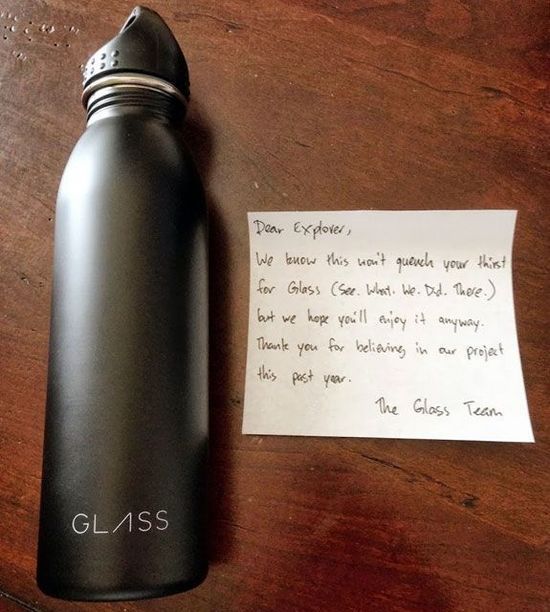 GLASS
Dear Explorer,
We know this won't quench your thirst
for Glass (See. What. We. Did. There.)
but we hope you'll enjoy it anyway.
Thank you for believing in our project
this past year.
The Glass Team